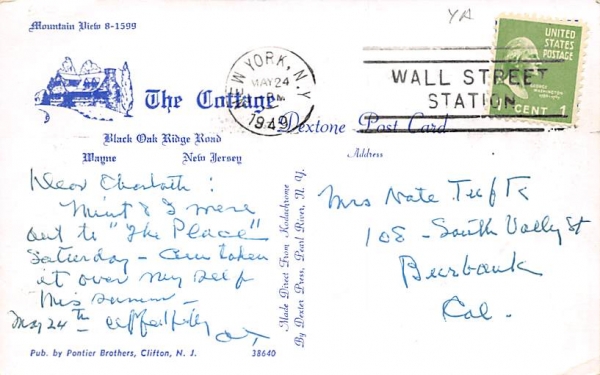 Mountain View 8-1599
YA
UNITED
STATES
POSTAGE
1 CENT 1
NEW YORK, N.Y.
MAY 24
PM
1949
WALL STREET
STATION
The Cottage
Dextone Post Card
Black Oak Ridge Road
Wayne New Jersey
Address
Dear Charlotte:
& I were
out to "The Place"
Saturday - taken
it over my self
this summer -
May 24th
Mrs Nate
108 - South Valley St
Burbank
Cal.
Made Direct From Kodachrome
By Dexter Press, Pearl River, N. Y.
Pub. by Pontier Brothers, Clifton, N. J. 38640